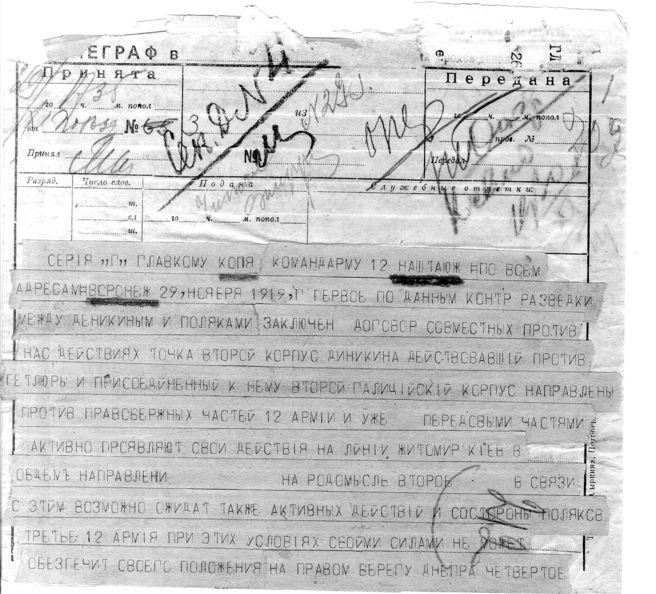 ЕГРАФ в
Принята
Передана
го ч. м. попол
№
из
го ч. м. попол
пров. №
Принял
№
Передал
Разряд.
Число слов.
Подана
Служебные отметки:
т.
го ч. м. попол
сл
ш.
СЕРІЯ „Г" ГЛАВКОМУ КОПЯ КОМАНДАРМУ 12 НАШТАЮЖ =ПО ВСЕМ
АДРЕСАМ=ВОРОНЕЖ 29,НОЯБРЯ 1919,Г ПЕРВОЕ ПО ДАННЫМ КОНТР РАЗВЕДКИ
МЕЖДУ ДЕНИКИНЫМ И ПОЛЯКАМИ ЗАКЛЮЧЕН ДОГОВОР СОВМЕСТНЫХ ПРОТИВ
НАС ДЕЙСТВИЯХ ТОЧКА ВТОРОЙ КОРПУС ДИНИКИНА ДЕЙСТВОВАВШІЙ ПРОТИВ
ПЕТЛЮРЫ И ПРИСОЕДЙНЕННЫЙ К НЕМУ ВТОРОЙ ГАЛИЦІЙСКІЙ КОРПУС НАПРАВЛЕНЫ
ПРОТИВ ПРАВОБЕРЖНЫХ ЧАСТЕЙ 12 АРМІИ И УЖЕ ПЕРЕДОВЫМИ ЧАСТЯМИ
АКТИВНО ПРОЯВЛЯЮТ СВОИ ДЕЙСТВІЯ НА ЛЙНІЙ, ЖИТОМИР КІЕВ В
ОБЩЕМЪ НАПРАВЛЕНИ НА РОДОМЫСЛЬ ВТОРОЕ В СВЯЗИ
С ЭТИМ ВОЗМОЖНО ОЖИДАТ ТАКЖЕ АКТИВНЫХ ДЕЙСТВІЙ И СОСТОРОНЫ ПОЛЯКОВ
ТРЕТЬЕ: 12 АРМІЯ ПРИ ЭТИХ УСЛОВІЯХ СВОЙМИ СИЛАМИ НЕ МОЖЕТ
ОБЕЗПЕЧИТ СВОЕГО ПОЛОЖЕНИЯ НА ПРАВОМ БЕРЕГУ ДНЕПРА ЧЕТВЕРТОЕ